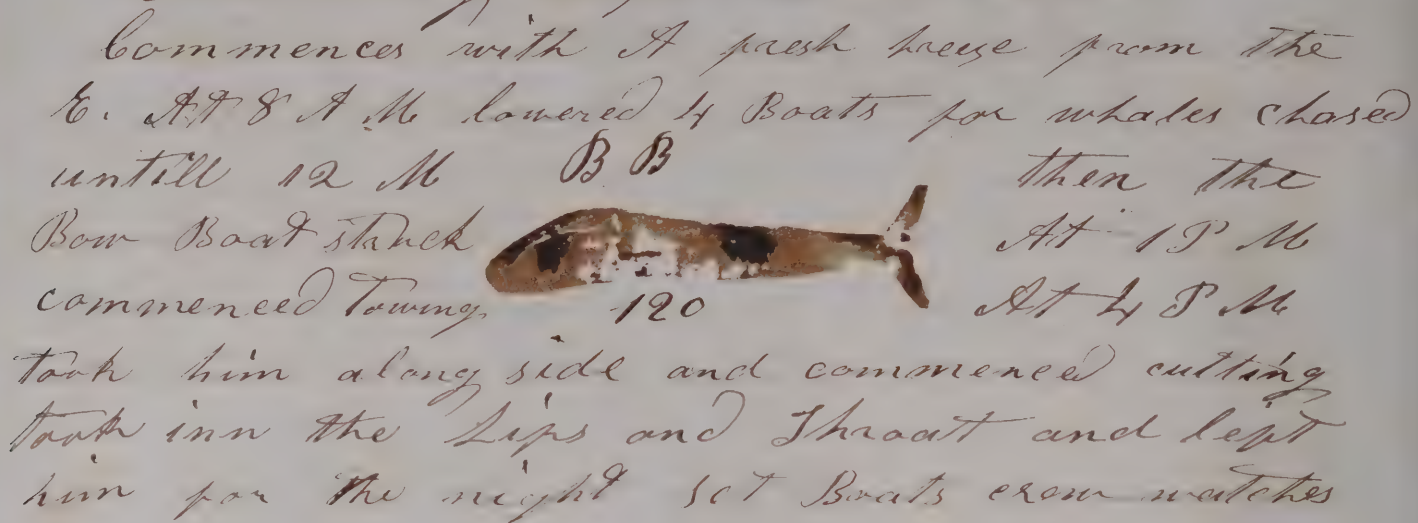 Commences with A fresh breeze from the
E. At 8 A M lowered 4 Boats for whales chased
untill 12 M B B then the
Bow Boat struck At 1 P M
commenced Towing 120 At 4 P M
took him along side and commenced cutting
Took inn the Lips and Throat and left
him for the night set Boats crew watches